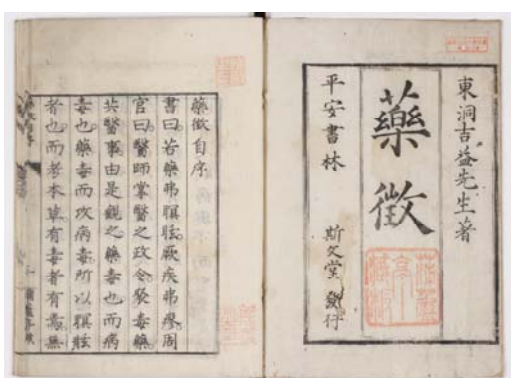 東洞吉益先生著
藥徵
平安書林 斯文堂 發行
藥徵自序
書曰若藥弗瞑眩厥疾弗瘳周
官曰醫師掌醫之政令聚毒藥
共醫事由是觀之藥毒也而病
毒也藥毒而攻病毒所以瞑眩
者也而考本草有毒者有焉無